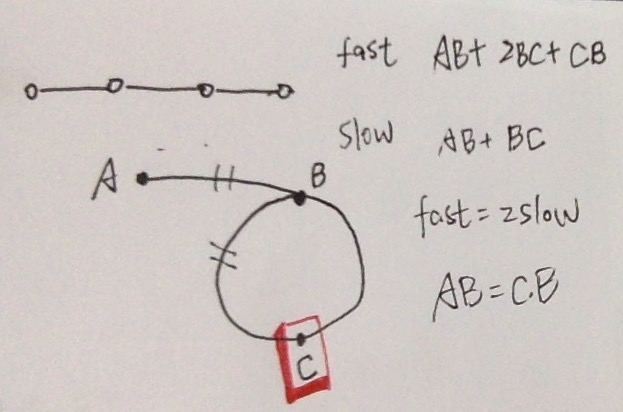 fast AB+ 2BC+ CB
slow AB+ BC
A B
fast=2slow
AB=CB
C